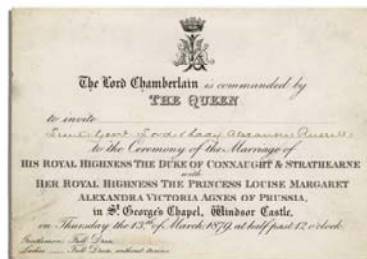 The Lord Chamberlain is commanded by
THE QUEEN
to invite
Lieut. Genl. Lord & Lady Alexander Russell
to the Ceremony of the Marriage of
HIS ROYAL HIGHNESS THE DUKE OF CONNAUGHT & STRATHEARNE
with
HER ROYAL HIGHNESS THE PRINCESS LOUISE MARGARET
ALEXANDRA VICTORIA AGNES OF PRUSSIA,
in St George's Chapel, Windsor Castle,
on Thursday the 13th of March, 1879, at half past 12 o'clock.
Gentlemen Full Dress.
Ladies Full Dress, without trains.